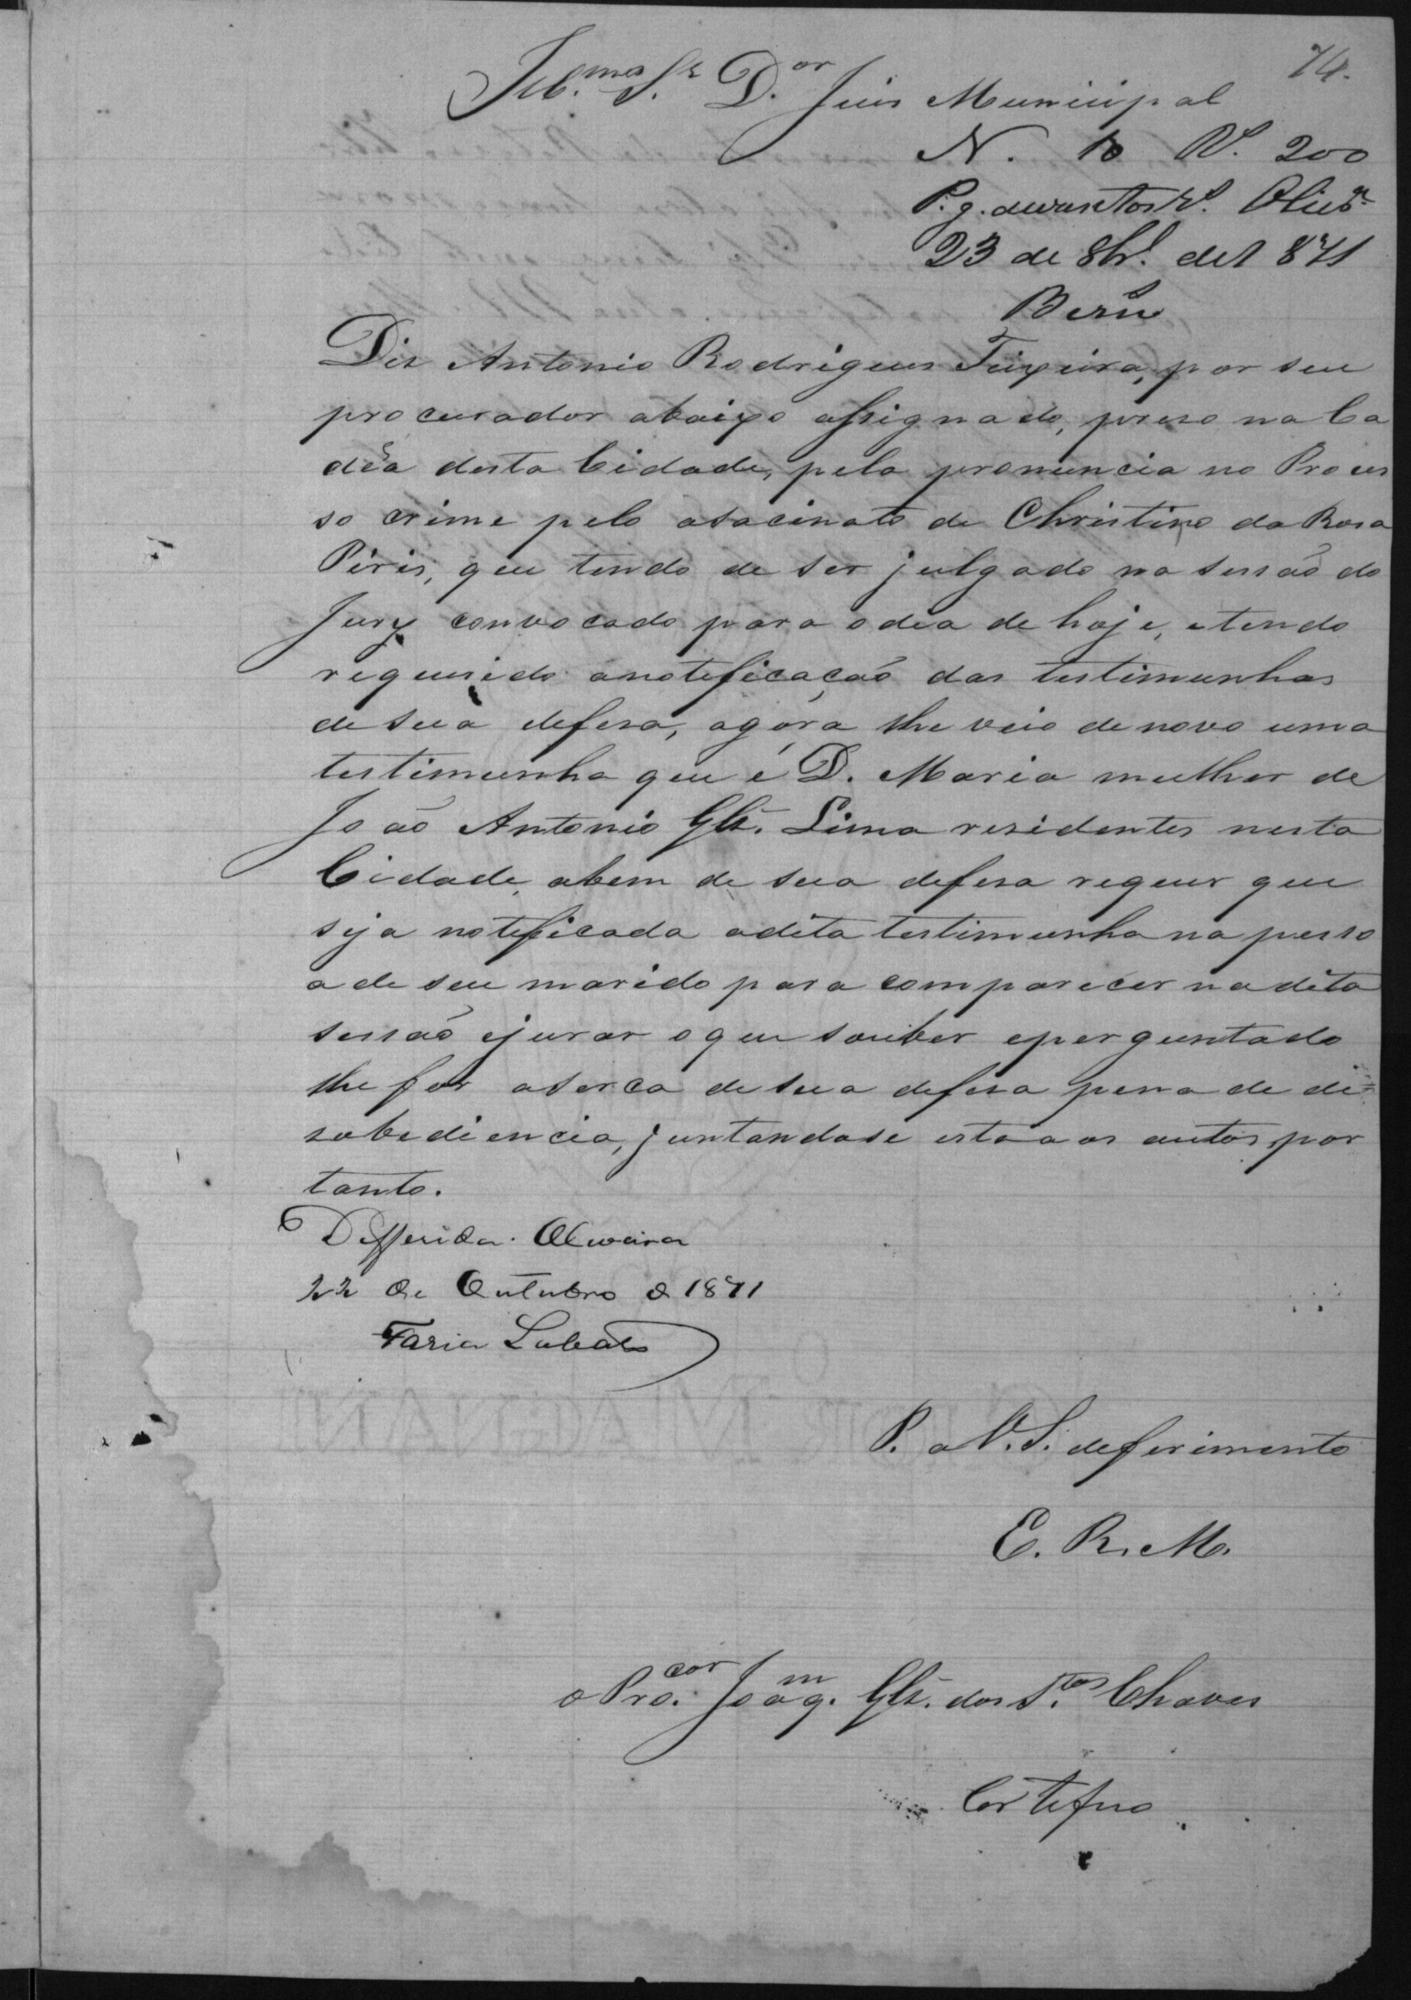 74.
Ill.mo Sr. D.or Juis Municipal
N. 10 Rs. 200
P.g. dusentos rs. Olivra
23 de 8br. de 1871
Dis Antonio Rodrigues Teixeira, por seu
procurador abaixo assignado, preso na Ca
dêa desta Cidade, pela pronuncia no Proces
so crime pelo asacinato de Christino da Rosa
Piris, que tendo de ser julgado na sessão do
Jury convocado para o dia de hoje, e tendo
requerido a notificação das testimunhas
de sua defesa, agora lhe veio de novo uma
testimunha que é D. Maria mulher de
João Antonio Glz. Lima residentes nesta
Cidade, abem de sua defesa requer que
seja notificada a dita testimunha na pesso
a de seu marido para comparecer na dita
sessão e jurar o que souber e perguntado
lhe for aserca de sua defesa pena de di
sobediencia, juntandose esta aos autos, por
tanto.
Defferida. Oliveira
22 de Outubro d 1871
Faria Lobato
P. a V. S. deferimento
E. R. M.
o Pro.cor Joaq.m Glz. dos S.tos Chaves
Certifico